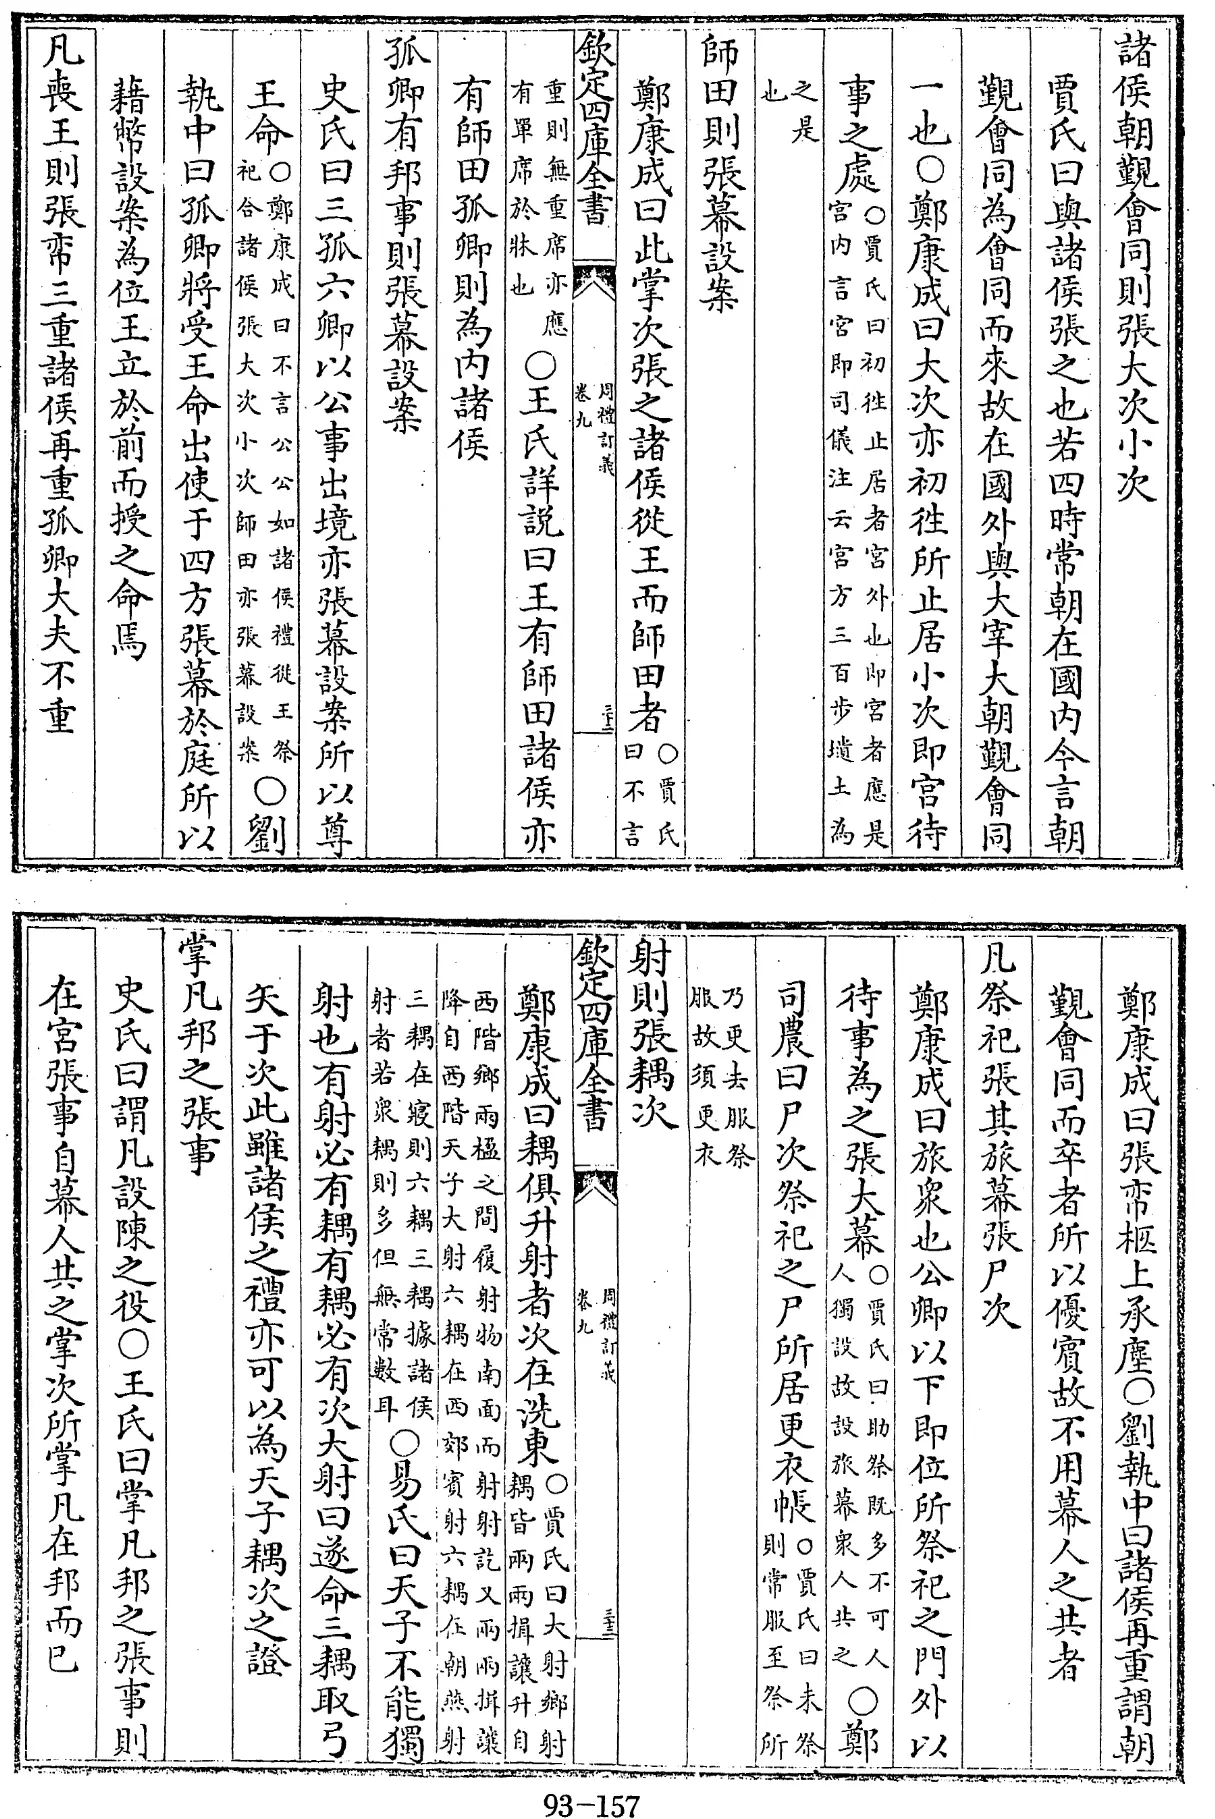 諸侯朝覲會同則張大次小次
賈氏曰與諸侯張之也若四時常朝在國内今言朝
覲會同為會同而來故在國外與大宰大朝覲會同
一也○鄭康成曰大次亦初徃所止居小次即宮待
事之處○賈氏曰初徃止居者宮外也即宮者應是宮内言宮即司儀注云宮方三百步壝土為
之是也
師田則張幕設案
鄭康成曰此掌次張之諸侯從王而師田者○賈氏曰不言
欽定四庫全書 周禮訂義 卷九 三十二
重則無重席亦應有單席於牀也○王氏詳説曰王有師田諸侯亦
有師田孤卿則為内諸侯
孤卿有邦事則張幕設案
史氏曰三孤六卿以公事出境亦張幕設案所以尊
王命○鄭康成曰不言公公如諸侯禮從王祭祀合諸侯張大次小次師田亦張幕設案○劉
執中曰孤卿將受王命出使于四方張幕於庭所以
藉幣設案為位王立於前而授之命焉
凡喪王則張帟三重諸侯再重孤卿大夫不重
鄭康成曰張帟柩上承塵○劉執中曰諸侯再重謂朝
覲會同而卒者所以優賓故不用幕人之共者
凡祭祀張其旅幕張尸次
鄭康成曰旅衆也公卿以下即位所祭祀之門外以
待事為之張大幕○賈氏曰助祭既多不可人人獨設故設旅幕衆人共之○鄭
司農曰尸次祭祀之尸所居更衣帳○賈氏曰未祭則常服至祭所
乃更去服祭服故須更衣
射則張耦次
欽定四庫全書 周禮訂義 卷九 三十三
鄭康成曰耦俱升射者次在洗東○賈氏曰大射鄉射耦皆兩兩揖讓升自
西階鄉兩楹之間履射物南面而射射訖又兩兩揖讓降自西階天子大射六耦在西郊賓射六耦在朝燕射
三耦在寢則六耦三耦據諸侯射者若衆耦則多但無常數耳○易氏曰天子不能獨
射也有射必有耦有耦必有次大射曰遂命三耦取弓
矢于次此雖諸侯之禮亦可以為天子耦次之證
掌凡邦之張事
史氏曰謂凡設陳之役○王氏曰掌凡邦之張事則
在宮張事自幕人共之掌次所掌凡在邦而已
93-157